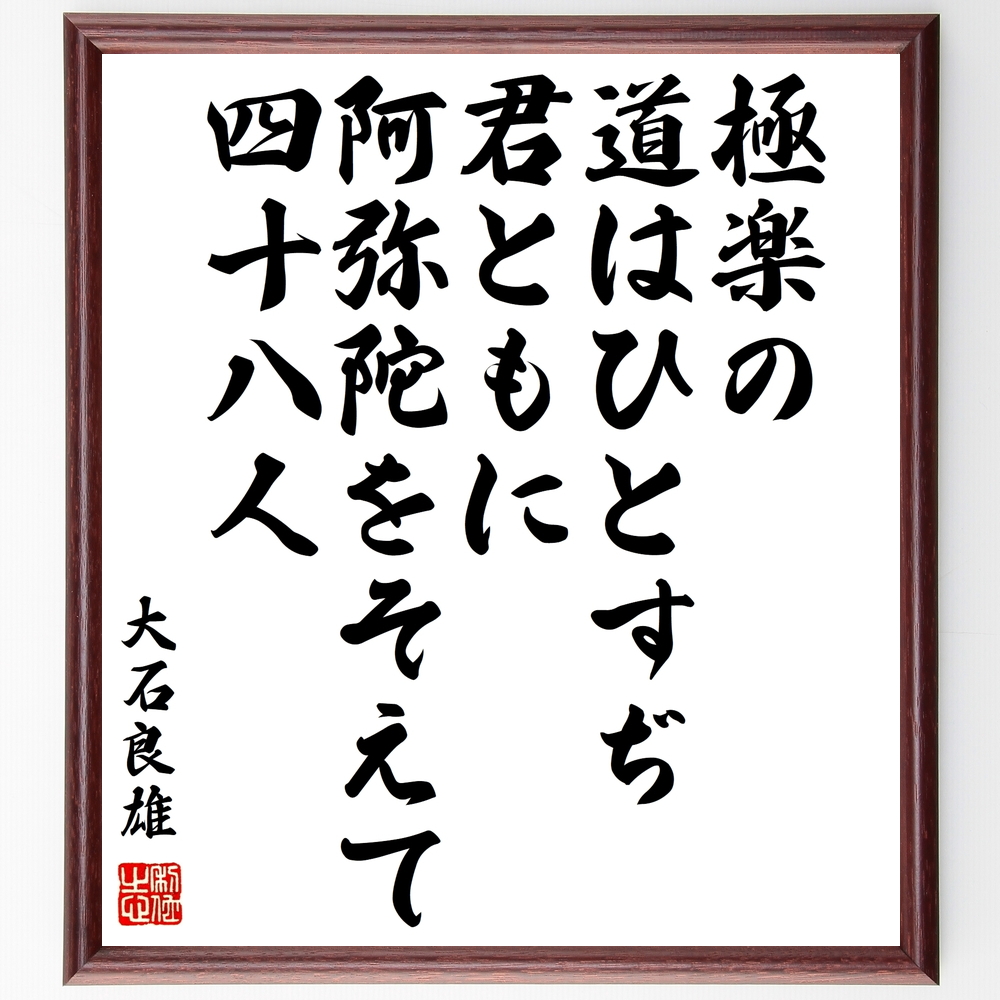 極楽の
道はひとすぢ
君ともに
阿弥陀をそえて
四十八人
大石良雄